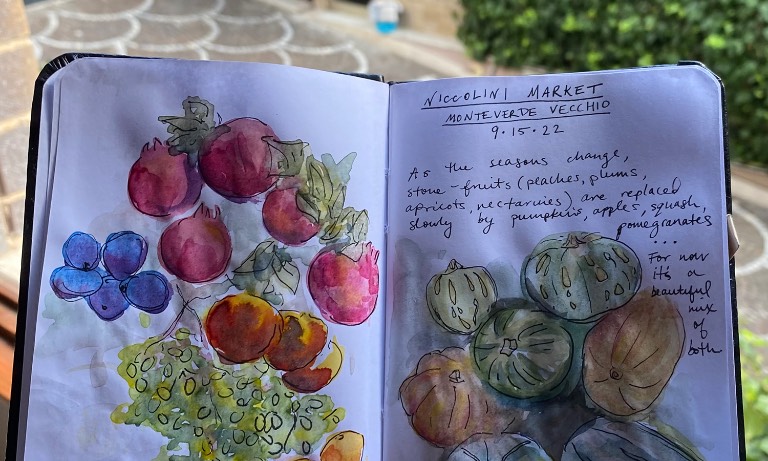 NICCOLINI MARKET
MONTEVERDE VECCHIO
9.15.22
As the seasons change,
stone-fruits (peaches, plums,
apricots, nectarines) are replaced
slowly by pumpkins, apples, squash,
pomegranates
...
For now
it's a
beautiful
mix
of
both